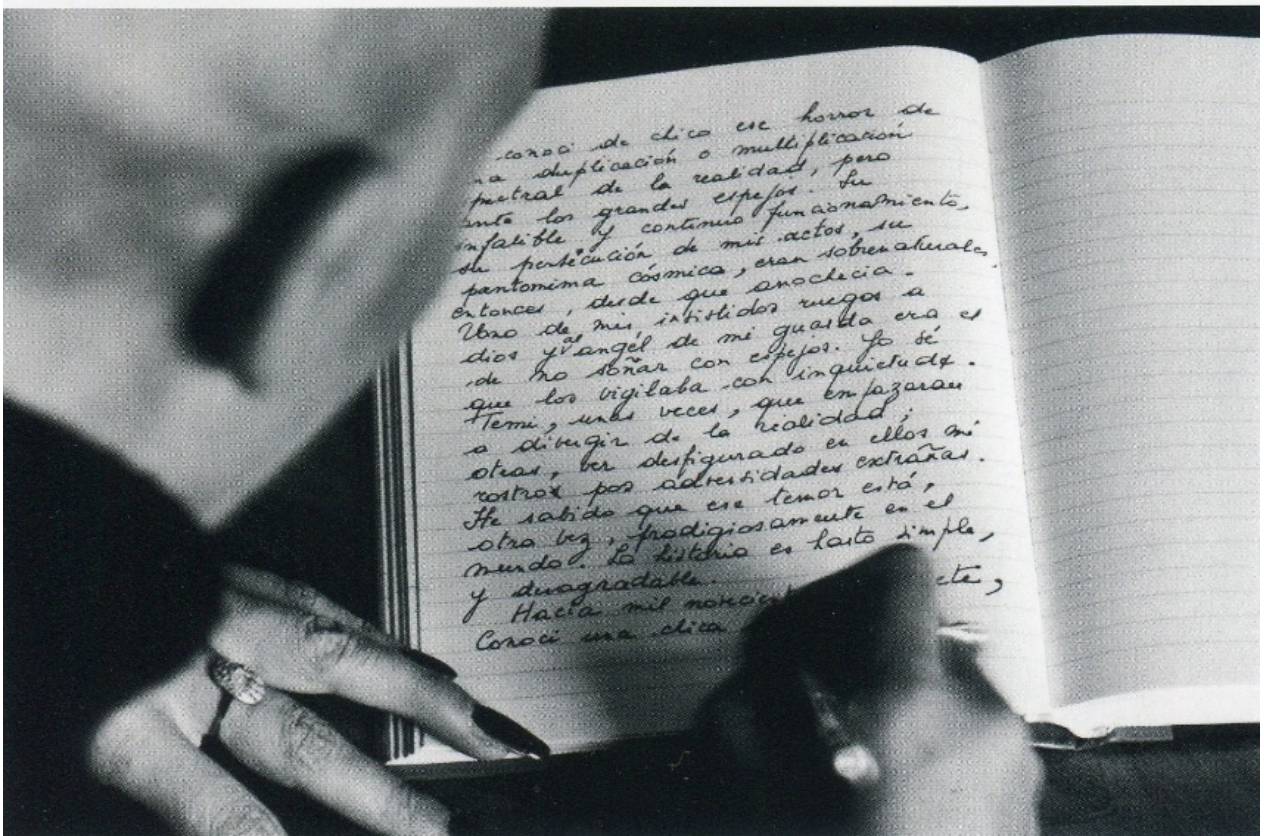 conocí de chico ese horror de
na duplicación o multiplicación
pectral de la realidad, pero
ante los grandes espejos. Su
nfalible y continuo funcionamiento,
su persecución de mis actos, su
pantomima cósmica, eran sobrenaturales,
entonces, desde que anochecía.
Uno de mis insistidos ruegos a
dios y al angel de mi guarda era el
de no soñar con espejos. Yo sé
que los vigilaba con inquietud.
Temí, unas veces, que empezaran
a divergir de la realidad;
otras, ver desfigurado en ellos mi
rostro por adversidades extrañas.
He sabido que ese temor está,
otra vez, prodigiosamente en el
mundo. La historia es harto simple,
y desagradable.
Hacia mil novecient
Conocí una chica